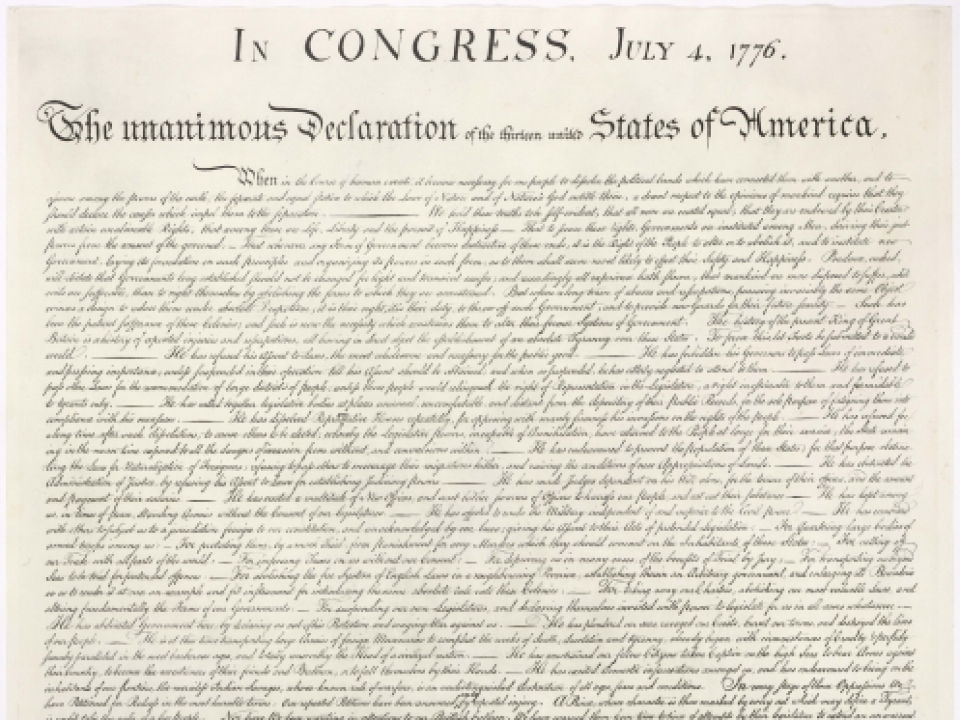 In CONGRESS, July 4, 1776.
The unanimous Declaration of the thirteen united States of America,
When in the Course of human events, it becomes necessary for one people to dissolve the political bands which have connected them with another, and to
assume among the powers of the earth, the separate and equal station to which the Laws of Nature and of Nature's God entitle them, a decent respect to the opinions of mankind requires that they
should declare the causes which impel them to the separation. We hold these truths to be self-evident, that all men are created equal, that they are endowed by their Creator
with certain unalienable Rights, that among these are Life, Liberty and the pursuit of Happiness.— That to secure these rights, Governments are instituted among Men, deriving their just
powers from the consent of the governed,— That whenever any Form of Government becomes destructive of these ends, it is the Right of the People to alter or to abolish it, and to institute new
Government, laying its foundation on such principles and organizing its powers in such form, as to them shall seem most likely to effect their Safety and Happiness. Prudence, indeed,
will dictate that Governments long established should not be changed for light and transient causes; and accordingly all experience hath shewn, that mankind are more disposed to suffer, while
evils are sufferable, than to right themselves by abolishing the forms to which they are accustomed. But when a long train of abuses and usurpations, pursuing invariably the same Object
evinces a design to reduce them under absolute Despotism, it is their right, it is their duty, to throw off such Government, and to provide new Guards for their future security.— Such has
been the patient sufferance of these Colonies; and such is now the necessity which constrains them to alter their former Systems of Government. The history of the present King of Great
Britain is a history of repeated injuries and usurpations, all having in direct object the establishment of an absolute Tyranny over these States. To prove this, let Facts be submitted to a candid
world. He has refused his Assent to Laws, the most wholesome and necessary for the public good. He has forbidden his Governors to pass Laws of immediate
and pressing importance, unless suspended in their operation till his Assent should be obtained; and when so suspended, he has utterly neglected to attend to them. He has refused to
pass other Laws for the accommodation of large districts of people, unless those people would relinquish the right of Representation in the Legislature, a right inestimable to them and formidable
to tyrants only. He has called together legislative bodies at places unusual, uncomfortable, and distant from the depository of their public Records, for the sole purpose of fatiguing them into
compliance with his measures. He has dissolved Representative Houses repeatedly, for opposing with manly firmness his invasions on the rights of the people. He has refused for
a long time, after such dissolutions, to cause others to be elected; whereby the Legislative powers, incapable of Annihilation, have returned to the People at large for their exercise; the State remain-
ing in the mean time exposed to all the dangers of invasion from without, and convulsions within. He has endeavoured to prevent the population of these States; for that purpose obstruc-
ting the Laws for Naturalization of Foreigners; refusing to pass others to encourage their migrations hither, and raising the conditions of new Appropriations of Lands. He has obstructed the
Administration of Justice, by refusing his Assent to Laws for establishing Judiciary powers. He has made Judges dependent on his Will alone, for the tenure of their offices, and the amount
and payment of their salaries. He has erected a multitude of New Offices, and sent hither swarms of Officers to harrass our people, and eat out their substance. He has kept among
us, in times of peace, Standing Armies without the Consent of our legislatures. He has affected to render the Military independent of and superior to the Civil power. He has combined
with others to subject us to a jurisdiction foreign to our constitution, and unacknowledged by our laws; giving his Assent to their Acts of pretended Legislation:— For Quartering large bodies of
armed troops among us:— For protecting them, by a mock Trial, from punishment for any Murders which they should commit on the Inhabitants of these States:— For cutting off
our Trade with all parts of the world:— For imposing Taxes on us without our Consent:— For depriving us in many cases, of the benefits of Trial by Jury:— For transporting us beyond
Seas to be tried for pretended offences:— For abolishing the free System of English Laws in a neighbouring Province, establishing therein an Arbitrary government, and enlarging its Boundaries
so as to render it at once an example and fit instrument for introducing the same absolute rule into these Colonies:— For taking away our Charters, abolishing our most valuable Laws, and
altering fundamentally the Forms of our Governments:— For suspending our own Legislatures, and declaring themselves invested with power to legislate for us in all cases whatsoever.—
He has abdicated Government here, by declaring us out of his Protection and waging War against us. He has plundered our seas, ravaged our Coasts, burnt our towns, and destroyed the lives
of our people. He is at this time transporting large Armies of foreign Mercenaries to compleat the works of death, desolation and tyranny, already begun with circumstances of Cruelty & perfidy
scarcely paralleled in the most barbarous ages, and totally unworthy the Head of a civilized nation. He has constrained our fellow Citizens taken Captive on the high Seas to bear Arms against
their Country, to become the executioners of their friends and Brethren, or to fall themselves by their Hands. He has excited domestic insurrections amongst us, and has endeavoured to bring on the
inhabitants of our frontiers, the merciless Indian Savages, whose known rule of warfare, is an undistinguished destruction of all ages, sexes and conditions. In every stage of these Oppressions We
have Petitioned for Redress in the most humble terms: Our repeated Petitions have been answered only by repeated injury. A Prince, whose character is thus marked by every act which may define a Tyrant,
is unfit to be the ruler of a free people. Nor have We been wanting in attentions to our Brittish brethren. We have warned them from time to time of attempts by their legislature to extend an unwarrantable